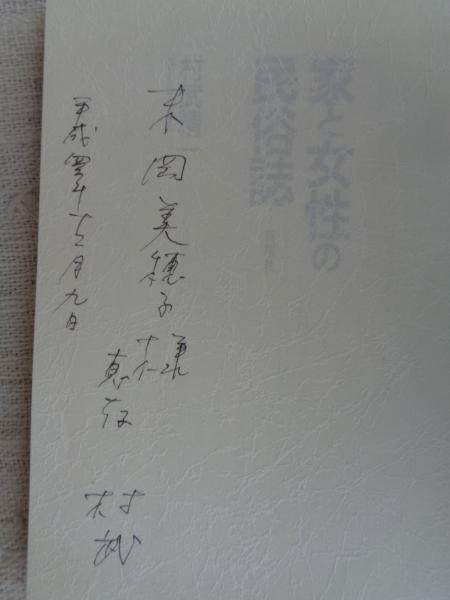 家と女性の
民俗誌
末岡美穂子様
恵存
村武
平成四年十二月九日